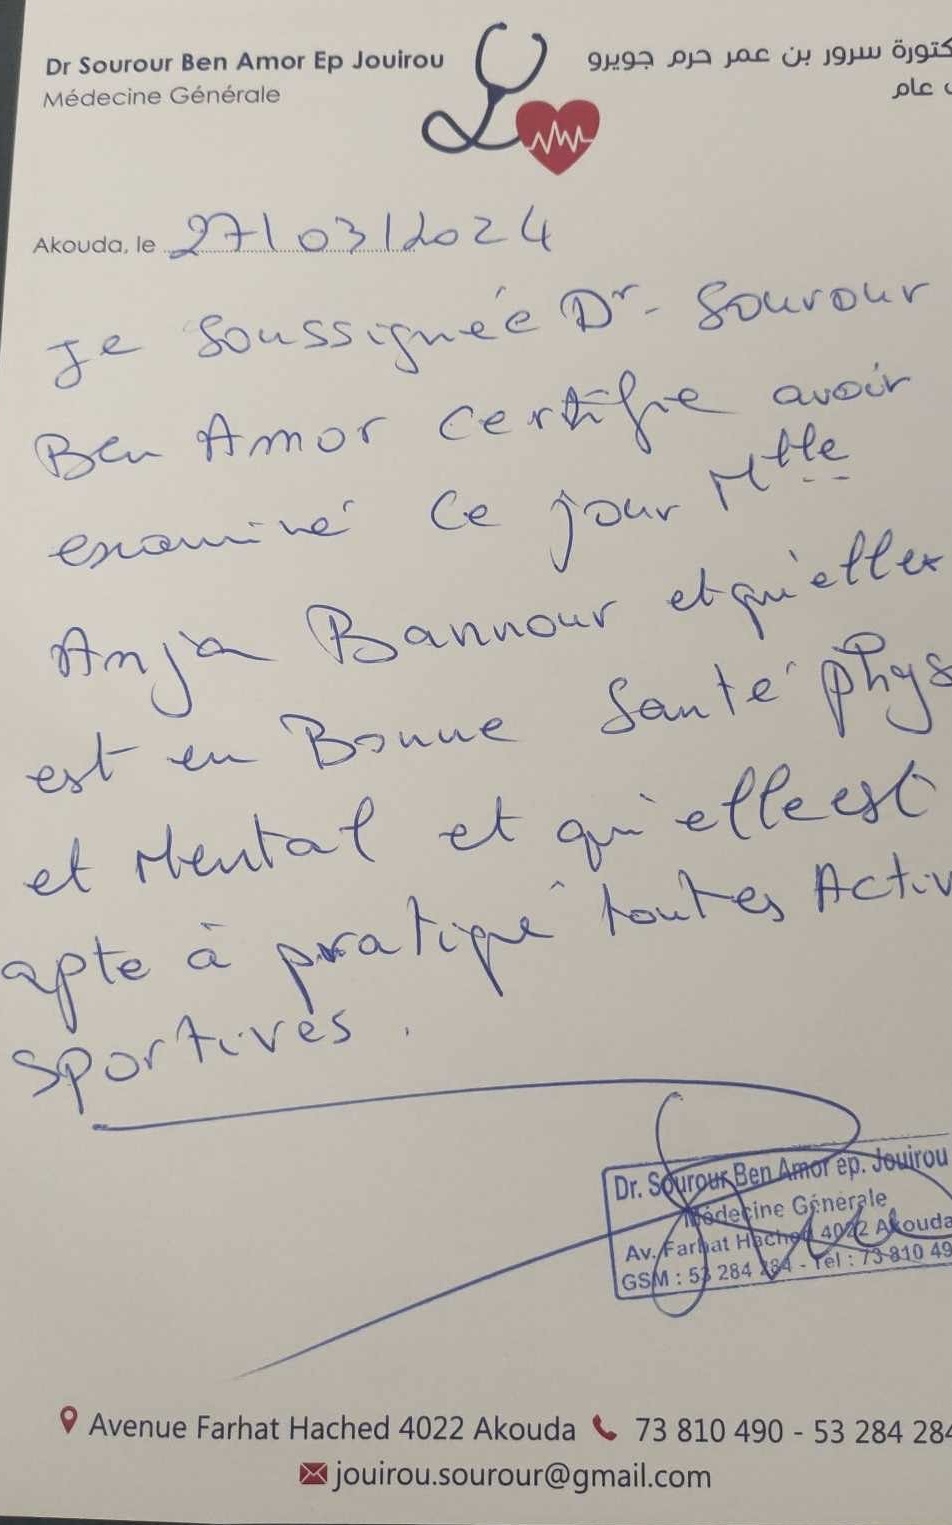 Dr Sourour Ben Amor Ep Jouirou
Médecine Générale
كتورة سرور بن عمر حرم جويرو
عام
Akouda, le 27/03/2024
Je soussignée Dr. Sourour
Ben Amor certifie avoir
examiné ce jour Mlle
Anja Bannour et qu'elle
est en Bonne Santé phys
et Mental et qu'elle est
apte à pratiqué toutes Activ
Sportives.
Dr. Sourour Ben Amor ép. Jouirou
Médecine Générale
Av. Farhat Hached 4022 Akouda
GSM : 53 284 284 - Tél : 73 810 49
Avenue Farhat Hached 4022 Akouda 73 810 490 - 53 284 284
jouirou.sourour@gmail.com